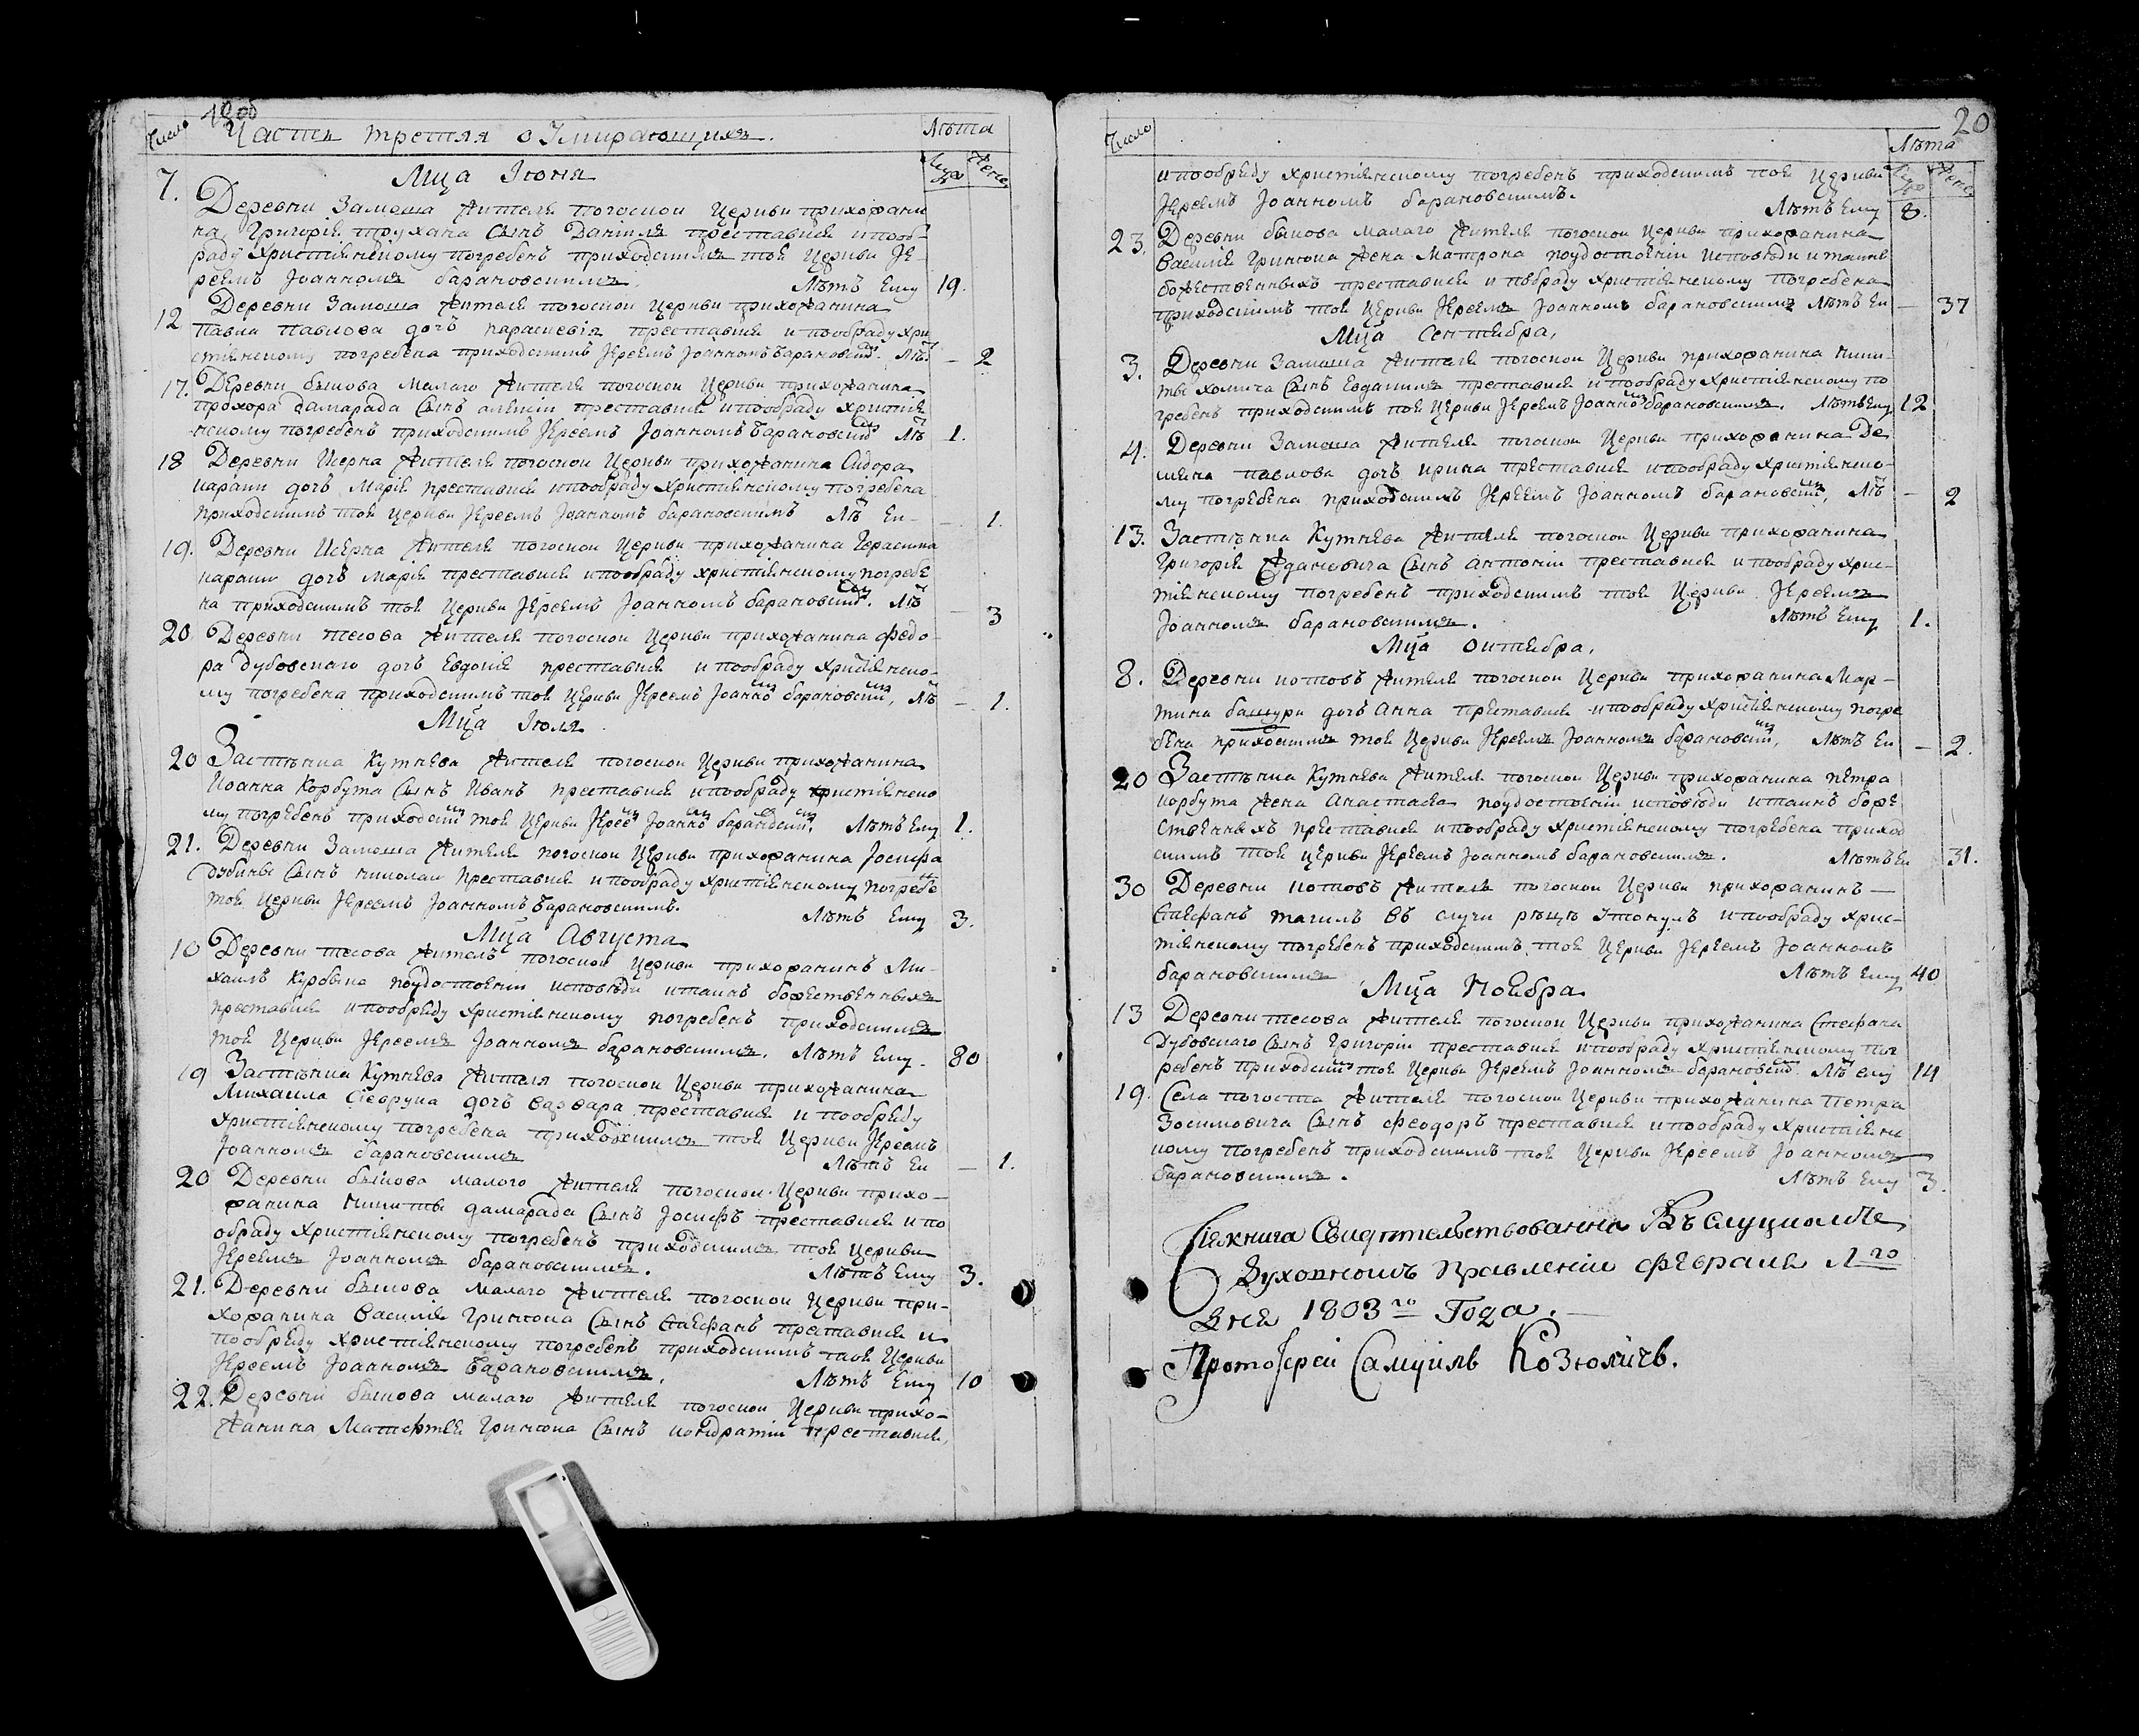 Число
Часть третяя о Умирающихъ.
Лѣта
Муже Женс
Мца Іюня
7. Деревни Замоша жителя погоскои Церкви прихожани
на Григорія трухана Сынъ Даніилъ преставися и пооб-
раду Христіянскому погребенъ приходскимъ тоя Церкви Іе-
реемъ Іоанномъ барановскимъ. Лѣтъ Ему 19.
12 Деревни Замоша жителя погоскои Церкви прихожанина
Павла Павлова дочъ параскевія преставися и пообраду Хри
стіянскому погребена приходскимъ Іереемъ Іоанномъ Барановским. Лѣ. — 2
17. Деревни быкова Малаго жителя погоскои Церкви прихожанина
прохора дамарада Сынъ алексіи преставися и пообраду христія
нскому погребенъ приходскимъ Іереемъ Іоанномъ Барановским Лѣ 1.
18 Деревни Искрка жителя погоскои Церкви прихожанина Сидора
карани дочъ Марія преставися и пообраду Христіянскому погребена
приходскимъ тоя Церкви Іереемъ Іоанномъ барановскимъ Лѣ Еи — 1.
19. Деревни Искрка жителя погоскои Церкви прихожанина Герасима
карани дочъ марія преставися и пообраду христіянскому погребе
на приходскимъ тоя Церкви Іереемъ Іоанномъ барановским. Лѣ — 3
20 Деревни тесова жителя погоскои Церкви прихожанина федо-
ра дубовскаго дочъ Евдокія преставися и пообраду христіянско-
му погребена приходскимъ тоя Церкви Іереемъ Іоанном барановским, Лѣ — 1.
Мца Іюля
20 Застѣнка Кутнева жителя погоскои Церкви прихожанина
Иоанна Корбута Сынъ Иванъ преставися и пообраду христіянско
му погребенъ приходским тоя Церкви Іереем Іоанном барановским. Лѣтъ Ему 1.
21. Деревни Замоша жителя погоскои Церкви прихожанина Іосифа
дубины Сынъ николаи преставися и пообраду христіянскому погребе
тоя Церкви Іереемъ Іоанномъ Барановскимъ. Лѣтъ Ему 3.
Мца Августа
10 Деревни тесова жителъ погоскои Церкви прихожанинъ Ми-
хаилъ Курбыка поудостоеніи исповѣди итаинъ божественныхъ
преставися и пообраду христіянскому погребенъ приходскимъ
тоя Церкви Іереемъ Іоанномъ барановскимъ. Лѣтъ Ему 80
19 Застѣнка Кутнева жителя погоскои Церкви прихожанина
Михаила Севрука дочъ варвара преставися и пообраду
христіянскому погребена приходскимъ тоя Церкви Іереемъ
Іоанномъ барановскимъ Лѣтъ Еи — 1.
20 Деревни быкова малого жителя погоскои Церкви прихо-
жанина никиты дамарада Сынъ Іосифъ преставися и по
обраду Христіянскому погребенъ приходскимъ тоя Церкви
Іереемъ Іоанномъ барановскимъ. Лѣтъ Ему 3.
21. Деревни быкова малого жителя погоскои Церкви при-
хожанина Василія Гринюка Сынъ Стефанъ преставися и
пообраду христіянскому погребенъ приходскимъ тоя Церкви
Іереемъ Іоанномъ Барановскимъ. Лѣтъ Ему 10
22. Деревни быкова малаго жителя погоскои Церкви прихо-
жанина Матфея Гринюка Сынъ кондратіи преставися,
20
Число
Лѣта
Муже Женс
и пообраду христіянскому погребенъ приходскимъ тоя Церкви
Іереемъ Іоанномъ барановскимъ. Лѣтъ Ему 8.
23. Деревни быкова малаго жителя погоскои Церкви прихожанина
Василія Гринюка жена Матрона поудостоеніи исповѣди итаинъ
божественныхъ преставися и пообраду христіянскому погребена
приходскимъ тоя Церкви Іереемъ Іоанномъ барановскимъ Лѣтъ Еи — 37
Мца Сентября,
3. Деревни Замоша жителя погоскои Церкви прихожанина ники-
ты хомича Сынъ Евдакимъ преставися и пообраду христіянскому по
гребенъ приходскимъ тоя Церкви Іереемъ Іоанном барановскимъ. Лѣтъ Ему 12
4. Деревни Замоша жителя погоскои Церкви прихожанина Де
мяна павлова дочъ ирина преставися и пообраду христіянско-
му погребена приходскимъ Іереемъ Іоанномъ барановским, Лѣ — 2
13. Застѣнка Кутнева жителя погоскои Церкви прихожанина
Григорія Адамовича Сынъ антоніи преставися и пообраду хрис-
тіянскому погребенъ приходскимъ тоя Церкви Іереемъ
Іоанномъ барановскимъ. Лѣтъ Ему 1.
Мца октября.
8. Деревни котовъ жителя погоскои Церкви прихожанина Мар-
тина башури дочъ анна преставися и пообраду христіянскому погре
бена приходскимъ тоя Церкви Іереемъ Іоанномъ барановским, Лѣтъ Еи — 2.
20 Застѣнка Кутнева жителя погоскои Церкви прихожанина петра
корбута жена анастасія поудостоеніи исповѣди итаинъ боже
ственныхъ преставися и пообраду христіянскому погребена приход
скимъ тоя церкви Іереемъ Іоанномъ барановскимъ. Лѣтъ Еи 31.
30 Деревни котовъ жителъ погоскои Церкви прихожанинъ —
Стефанъ тагилъ въ случи рѣцѣ утонулъ и пообраду хрис-
тіянскому погребенъ приходскимъ тоя Церкви Іереемъ Іоанномъ
барановскимъ Лѣтъ Ему 40
Мца Ноября
13 Деревни тесова жителя погоскои Церкви прихожанина Стефана
дубовскаго Сынъ Григоріи преставися и пообраду христіянскому пог
ребенъ приходским тоя Церкви Іереемъ Іоанномъ барановским Лѣ ему 14
19. Села погоста жителя погоскои Церкви прихожанина Петра
Зосимовича Сынъ феодоръ преставися и пообраду христіянс
кому погребенъ приходскимъ тоя Церкви Іереемъ Іоанномъ
барановскимъ. Лѣтъ Ему 3.
Сія книга Свидѣтельствованна Въ слуцкомъ
Духовномъ правленіи февраля 1го
дня 1803го Года.
ПротоІереи Самуилъ Козюличъ.